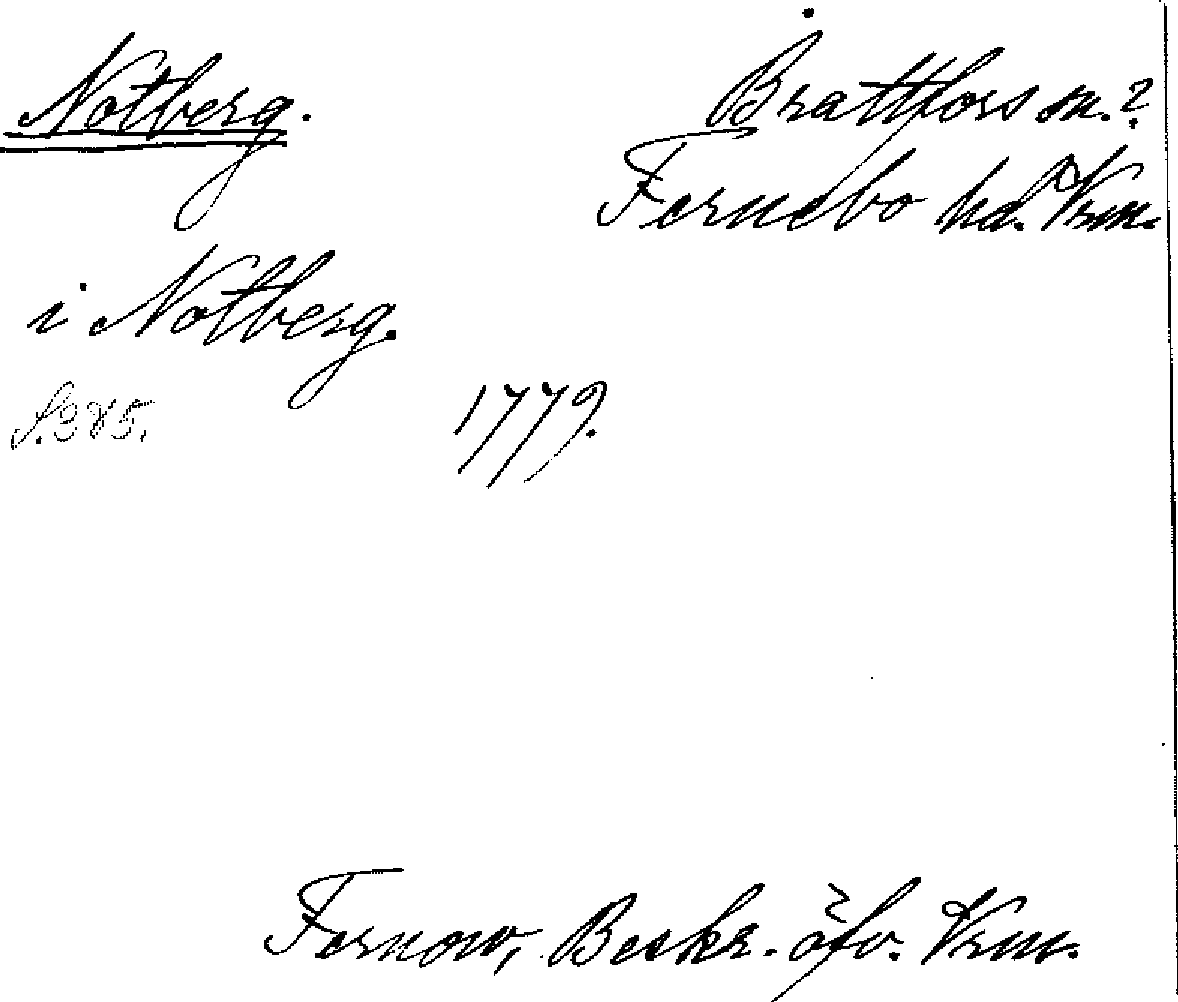 Notberg.
Brattfors sn.?
Fernebo hd. Vrm.
i Notberg.
S. 385.
1779.
Fernow, Beskr. öfv. Vrm.